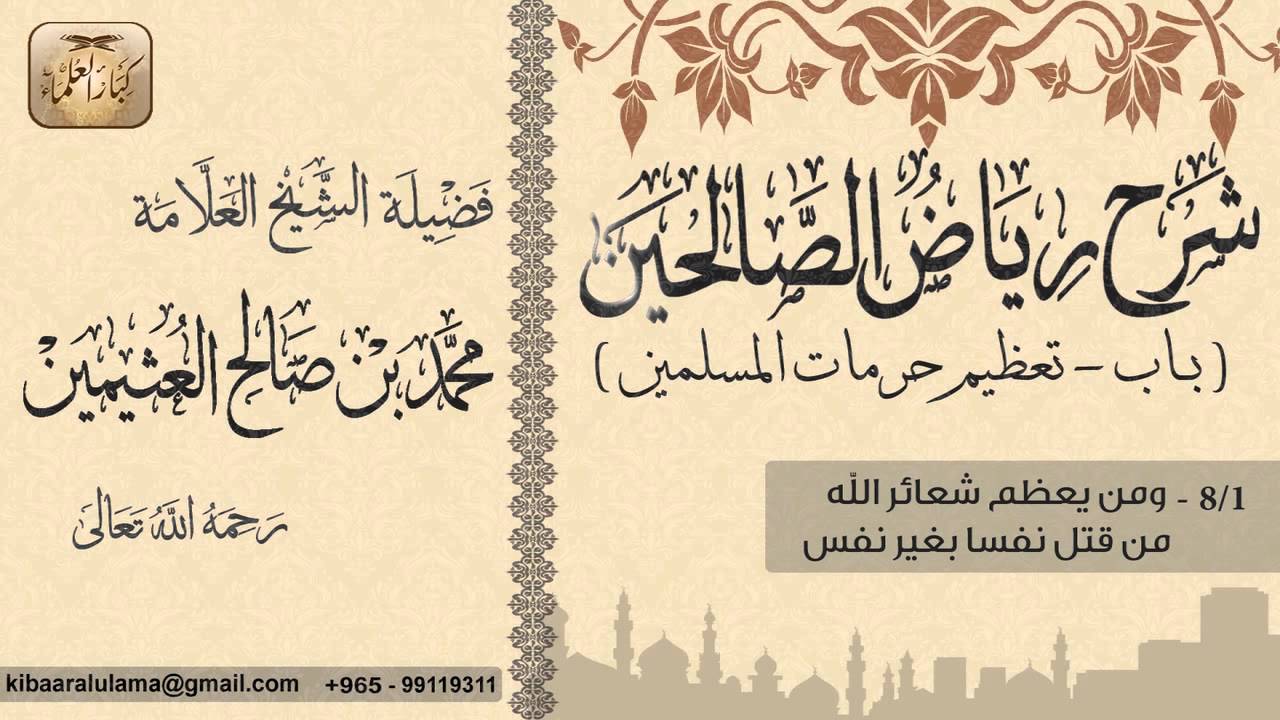 شَرْح رِيَاضُ الصَّالحِين
( باب – تعظيم حرمات المسلمين )
8/1 - ومن يعظم شعائر الله
من قتل نفسا بغير نفس
كِبَارُ العُلَمَاء
فَضِيلَة الشَّيْخ العَلَّامَة
محمَّد بْن صَالح العُثيمين
رَحِمَهُ اللَّهُ تَعَالَى
kibaaralulama@gmail.com +965 - 99119311